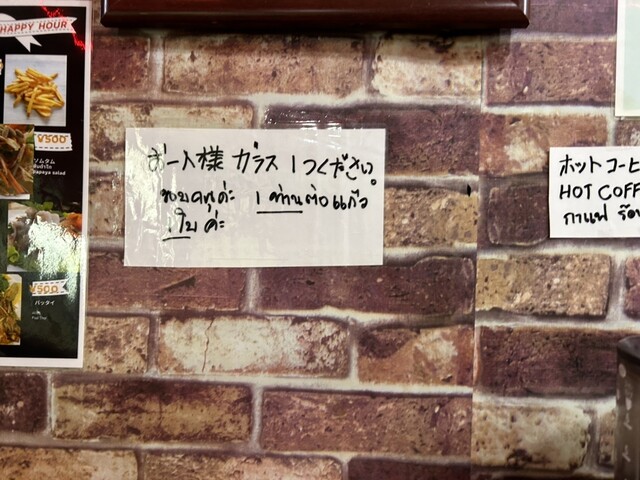 HAPPY HOUR
¥500
ソムタム
ส้มตำไท
Papaya salad
¥500
パッタイ
Pad Thai
お一人様 ガラス 1つください。
ขอบคุณค่ะ 1 ท่านต่อแก้ว
1ใบ ค่ะ
ホットコーヒ
HOT COFF
กาแฟ ร้อน